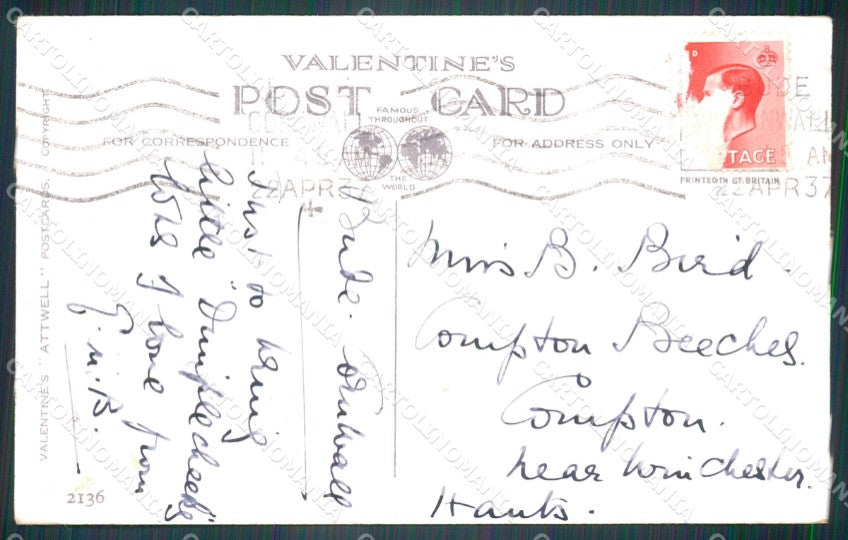 VALENTINE'S
POST CARD
FAMOUS
THROUGHOUT
THE
WORLD
FOR CORRESPONDENCE
FOR ADDRESS ONLY
22 APR 37
BUDE
CORNWALL
22 APR 37
POSTAGE
PRINTED IN GT. BRITAIN
VALENTINE'S "ATTWELL" POSTCARDS. COPYRIGHT.
2136
Bude. Cornwall
Just to bring
little "Dimplecheeks"
love from
G.M.B.
Miss B. Bird.
Compton Beeches.
Compton.
near Winchester.
Hants.
CARTOLINOMANIA